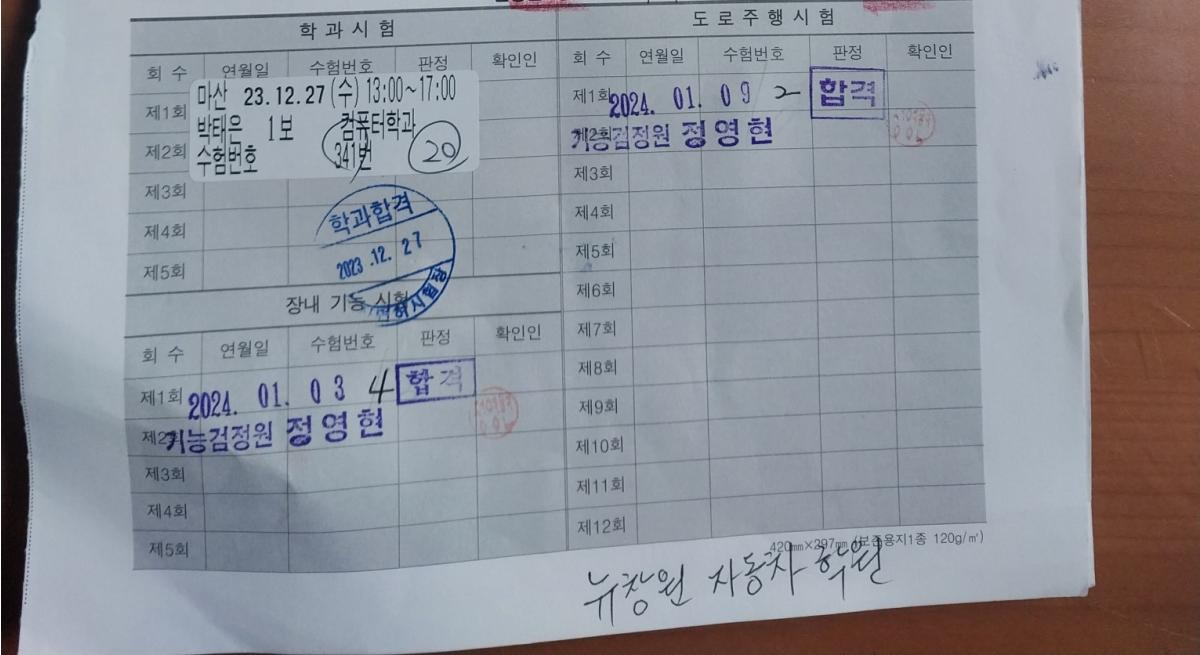 학 과 시 험
회 수 연월일 수험번호 판정 확인인
제1회
마산 23.12.27 (수) 13:00~17:00
박태은 1보 컴퓨터학과
수험번호 341번 20
제2회
제3회
제4회
제5회
학과합격
2023.12. 27
장내 기능 시험
회 수 연월일 수험번호 판정 확인인
제1회 2024. 01. 03 4 합격
제2회 기능검정원 정영현
제3회
제4회
제5회
도 로 주 행 시 험
회 수 연월일 수험번호 판정 확인인
제1회 2024. 01. 09 2 합격
제2회 기능검정원 정영현
제3회
제4회
제5회
제6회
제7회
제8회
제9회
제10회
제11회
제12회
420㎜×297㎜ (보존용지1종 120g/㎡)
뉴창원 자동차 학원